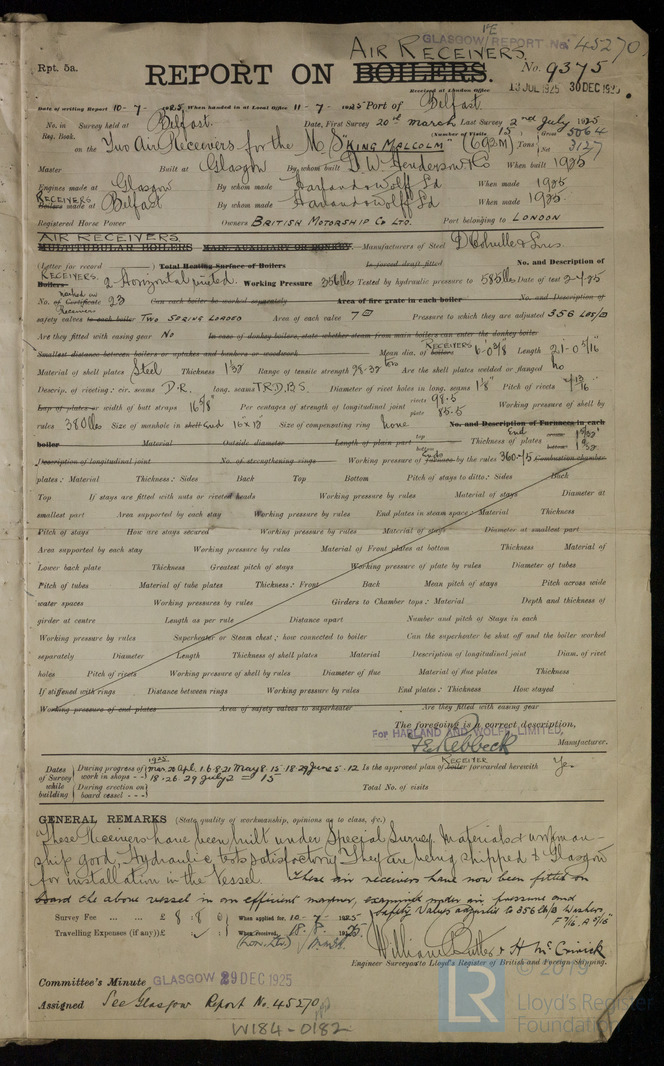 GLASGOW REPORT No 45270
Rpt. 5a.
AIR RECEIVERS.
REPORT ON BOILERS. No. 9375
Received at London Office 13 JUL 1925 30 DEC 1925
Date of writing Report 10-7-1925 When handed in at Local Office 11-7-1925 Port of Belfast
No. in Survey held at Belfast. Date, First Survey 20th March Last Survey 2nd July 1925
Reg. Book. (Number of Visits 15) Gross 5064
on the Two Air Receivers for the M.S "KING MALCOLM" (692M) Tons Net 3127
Master Built at Glasgow By whom built D W Henderson & Co When built 1925
Engines made at Glasgow By whom made Harland & Wolff Ld When made 1925
RECEIVERS
Boilers made at Belfast By whom made Harland & Wolff Ld When made 1925.
Registered Horse Power Owners BRITISH MOTORSHIP CO LTD. Port belonging to LONDON
AIR RECEIVERS
MULTITUBULAR BOILERS MAIN, AUXILIARY OR DONKEY. Manufacturers of Steel D Colville & Sons.
(Letter for record ) Total Heating Surface of Boilers Is forced draft fitted No. and Description of
RECEIVERS
Boilers 2 Horizontal Working Pressure 356 lbs Tested by hydraulic pressure to 585 lbs Date of test 2-7-25
marked on Receivers
No. of Certificate 23 Can each boiler be worked separately Area of fire grate in each boiler No. and Description of
safety valves to each boiler TWO SPRING LOADED Area of each valve 7 □" Pressure to which they are adjusted 356 LBS/□
Are they fitted with easing gear NO In case of donkey boilers, state whether steam from main boilers can enter the donkey boiler
Smallest distance between boilers or uptakes and bunkers or woodwork Mean dia. of boilers RECEIVERS 6'-0 5/8" Length 21'-0 5/16"
Material of shell plates Steel Thickness 1 1/32 Range of tensile strength 28-32 tons Are the shell plates welded or flanged no
Descrip. of riveting: cir. seams D.R. long. seams T.R.D.B.S. Diameter of rivet holes in long. seams 1 1/8" Pitch of rivets
Lap of plates or width of butt straps 16 5/8" Per centages of strength of longitudinal joint rivets 98.5 plate 85.5 Working pressure of shell by
rules 380 lbs Size of manhole in shell End 16"x 12 Size of compensating ring none No. and Description of Furnaces in each
boiler Material Outside diameter Length of plain part top bottom Thickness of plates End crown bottom
Description of longitudinal joint No. of strengthening rings Working pressure of furnace Ends by the rules 360-75 Combustion chamber
plates: Material Thickness: Sides Back Top Bottom Pitch of stays to ditto: Sides Back
Top If stays are fitted with nuts or riveted heads Working pressure by rules Material of stays Diameter at
smallest part Area supported by each stay Working pressure by rules End plates in steam space: Material Thickness
Pitch of stays How are stays secured Working pressure by rules Material of stays Diameter at smallest part
Area supported by each stay Working pressure by rules Material of Front plates at bottom Thickness Material of
Lower back plate Thickness Greatest pitch of stays Working pressure of plate by rules Diameter of tubes
Pitch of tubes Material of tube plates Thickness: Front Back Mean pitch of stays Pitch across wide
water spaces Working pressures by rules Girders to Chamber tops: Material Depth and thickness of
girder at centre Length as per rule Distance apart Number and pitch of Stays in each
Working pressure by rules Superheater or Steam chest; how connected to boiler Can the superheater be shut off and the boiler worked
separately Diameter Length Thickness of shell plates Material Description of longitudinal joint Diam. of rivet
holes Pitch of rivets Working pressure of shell by rules Diameter of flue Material of flue plates Thickness
If stiffened with rings Distance between rings Working pressure by rules End plates: Thickness How stayed
Working pressure of end plates Area of safety valves to superheater Are they fitted with easing gear
The foregoing is a correct description,
For HARLAND AND WOLFF, LIMITED,
F E Rebbeck Manufacturer.
1925
Dates of Survey while building
During progress of work in shops - - Mar. 20 Apl. 1.6.8.21 May 8.15.18.29 June 5.12 18.26.29 July 2 = 15
During erection on board vessel - - -
Is the approved plan of boiler RECEIVER forwarded herewith Yes
Total No. of visits
GENERAL REMARKS (State quality of workmanship, opinions as to class, &c.)
These Receivers have been built under Special Survey. Materials & workman-
ship good, Hydraulic tests satisfactory. They are being shipped to Glasgow
for installation in the Vessel. These air receivers have now been fitted on
board the above vessel in an efficient manner, examined under air pressure and
safety valves adjusted to 356 lbs/□ Washers, F 7/16, A 5/16"
Survey Fee ... ... £ 8 : 8 : 0 When applied for, 10-7-1925
Travelling Expenses (if any) £ When received, 18.8.1925
William Butler & H McCrivick
Engineer Surveyor to Lloyd's Register of British and Foreign Shipping.
Committee's Minute GLASGOW 29 DEC 1925
Assigned See Glasgow Report No. 45270
W184-0182
© 2019
LR
Lloyd's Register
Foundation